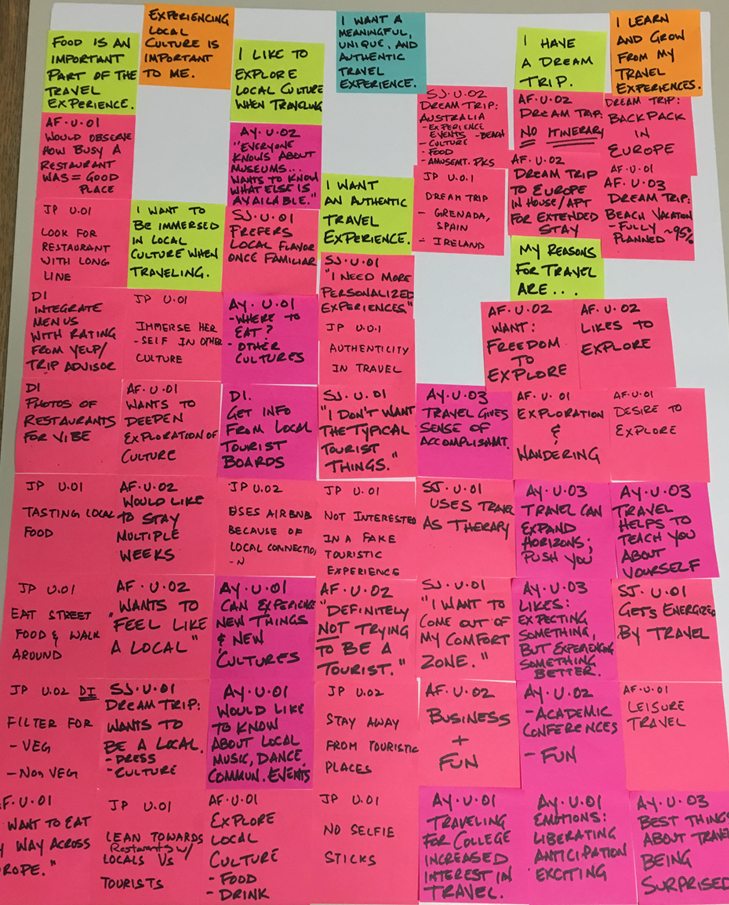 FOOD IS AN
IMPORTANT
PART OF THE
TRAVEL
EXPERIENCE.
EXPERIENCING
LOCAL
CULTURE IS
IMPORTANT
TO ME.
I LIKE TO
EXPLORE
LOCAL CULTURE
WHEN TRAVELING
I WANT A
MEANINGFUL,
UNIQUE, AND
AUTHENTIC
TRAVEL
EXPERIENCE.
I HAVE
A DREAM
TRIP.
I LEARN
AND GROW
FROM MY
TRAVEL
EXPERIENCES.
AF.U.01
WOULD OBSERVE
HOW BUSY A
RESTAURANT
WAS = GOOD
PLACE
AY.U.02
"EVERYONE
KNOWS ABOUT
MUSEUMS...
WANTS TO KNOW
WHAT ELSE IS
AVAILABLE."
SJ.U.02
DREAM TRIP:
AUSTRALIA
- EXPERIENCE
EVENTS - BEACH
- CULTURE
- FOOD
- AMUSMT. PKS
AF.U.02
DREAM TRIP:
NO ITINERARY
DREAM TRIP:
BACKPACK
IN
EUROPE
JP U.01
LOOK FOR
RESTAURANT
WITH LONG
LINE
I WANT TO
BE IMMERSED
IN LOCAL
CULTURE WHEN
TRAVELING.
SJ.U.01
PREFERS
LOCAL FLAVOR
ONCE FAMILIAR
I WANT
AN AUTHENTIC
TRAVEL
EXPERIENCE.
JP U.0.1
DREAM TRIP
- GRENADA,
SPAIN
- IRELAND
AF.U.02
DREAM TRIP
TO EUROPE
IN HOUSE/APT
FOR EXTENDED
STAY
AF.U.01
AF.U.03
DREAM TRIP:
BEACH VACATION
- FULLY ~95%
PLANNED
MY REASONS
FOR TRAVEL
ARE...
DI
INTEGRATE
MENUS
WITH RATING
FROM YELP/
TRIP ADVISOR
JP U.01
IMMERSE HER
- SELF IN OTHER
CULTURE
AY.U.01
- WHERE TO
EAT?
- OTHER
CULTURES
SJ.U.01
"I NEED MORE
PERSONALIZED
EXPERIENCES"
JP U.0.1
AUTHENTICITY
IN TRAVEL
AF.U.02
WANT:
FREEDOM
TO
EXPLORE
AF.U.02
LIKES TO
EXPLORE
DI
PHOTOS OF
RESTAURANTS
FOR VIBE
AF.U.01
WANTS TO
DEEPEN
EXPLORATION OF
CULTURE
DI.
GET INFO
FROM LOCAL
TOURIST
BOARDS
SJ.U.01
"I DON'T WANT
THE TYPICAL
TOURIST
THINGS."
AY.U.03
TRAVEL GIVES
SENSE OF
ACCOMPLISHMT.
AF.U.01
EXPLORATION
&
WANDERING
AF.U.01
DESIRE TO
EXPLORE
JP U.01
TASTING LOCAL
FOOD
AF.U.02
WOULD LIKE
TO STAY
MULTIPLE
WEEKS
JP U.02
USES AIRBNB
BECAUSE OF
LOCAL CONNECTIO
- N
JP U.01
NOT INTERESTED
IN A FAKE
TOURISTIC
EXPERIENCE
SJ.U.01
USES TRAVEL
AS THERAPY
AY.U.03
TRAVEL CAN
EXPAND
HORIZONS;
PUSH YOU
AY.U.03
TRAVEL
HELPS TO
TEACH YOU
ABOUT
YOURSELF
JP U.01
EAT STREET
FOOD & WALK
AROUND
AF.U.02
WANTS TO
"FEEL LIKE
A LOCAL"
AY.U.01
CAN EXPERIENCE
NEW THINGS
& NEW
CULTURES
AF.U.02
"DEFINITELY
NOT TRYING
TO BE A
TOURIST."
SJ.U.01
"I WANT TO
COME OUT OF
MY COMFORT
ZONE."
AY.U.03
LIKES:
EXPECTING
SOMETHING,
BUT EXPERIENCING
SOMETHING
BETTER.
SJ.U.01
GETS ENERGIZED
BY TRAVEL
JP U.02 DI
FILTER FOR
- VEG
- NON VEG
SJ.U.01
DREAM TRIP:
WANTS TO
BE A LOCAL.
- DRESS
- CULTURE
AY.U.01
WOULD LIKE
TO KNOW
ABOUT LOCAL
MUSIC, DANCE,
COMMUN. EVENTS
JP U.02
STAY AWAY
FROM TOURISTIC
PLACES
AF.U.02
BUSINESS
+
FUN
AY.U.02
- ACADEMIC
CONFERENCES
- FUN
AF.U.01
LEISURE
TRAVEL
F.U.01
WANT TO EAT
Y WAY ACROSS
ROPE."
JP U.01
LEAN TOWARDS
Restaurants w/
LOCALS VS
TOURISTS
AF.U.01
EXPLORE
LOCAL
CULTURE
- FOOD
- DRINK
JP U.01
NO SELFIE
STICKS
AY.U.01
TRAVELING
FOR COLLEGE
INCREASED
INTEREST IN
TRAVEL.
AY.U.01
EMOTIONS:
LIBERATING
ANTICIPATION
EXCITING
AY.U.03
BEST THING
ABOUT TRAVE
BEING
SURPRISED